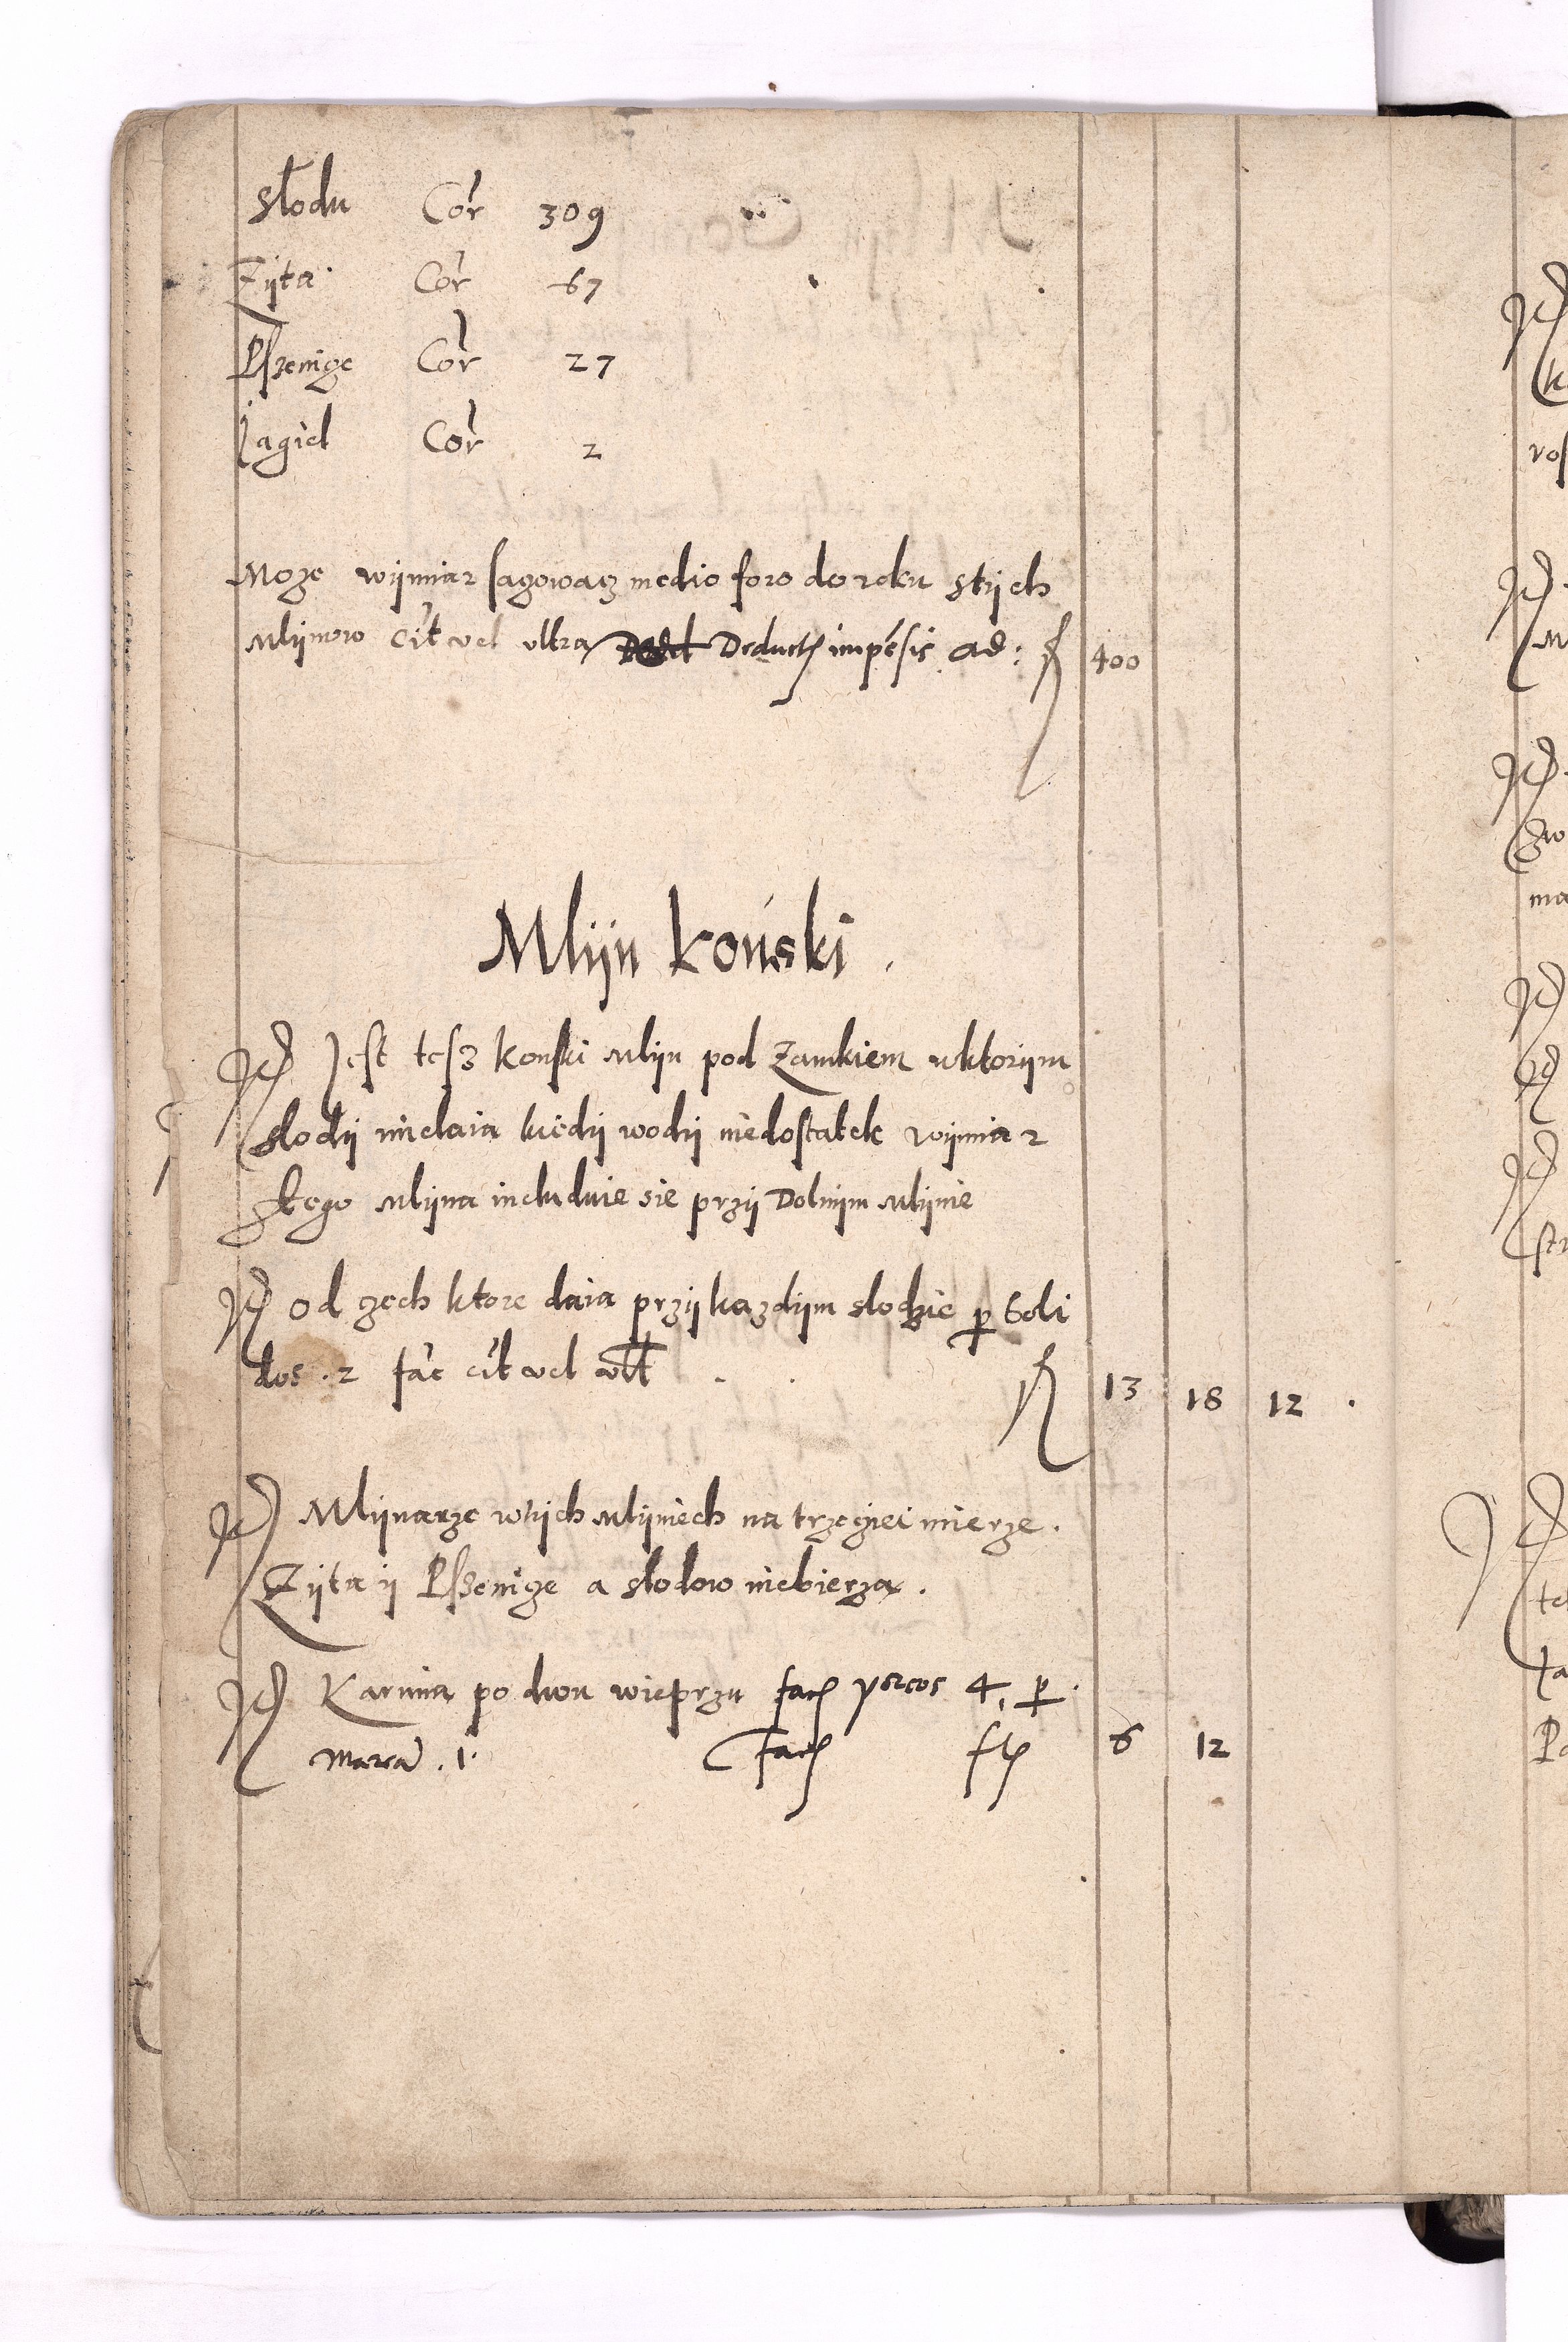 Słodu Cor 309
Zijta Cor 67
Pszenicze Cor 27
Jagiel Cor 2
Może wijmiar saczowacz medio foro do roku stijch
Mlijnow cit vel ultra Deductis impēsis ad: f 400
Mlijn koński.
Jtē Jest tesz konski Mlijn pod Zamkiem wktorijm
slodij mielaia kiedij wodij niedostatek wijmiar
stego Mlijna includuie sie przij Dolnijm Mlijnie
Jtē Od czech ktore daia przij kazdijm slodzie p Soli
dos . 2 fac cit vel vlt f 13 18 12 .
Jtē Mlijnarze wtijch Mlijniech na trzeczei mierze.
Zijta ij Pszenicze a slodow niebierza.
Jtē Karmia po dwu wieprzu facit porcos 4. p
Marca . 1. Facit flor 6 12